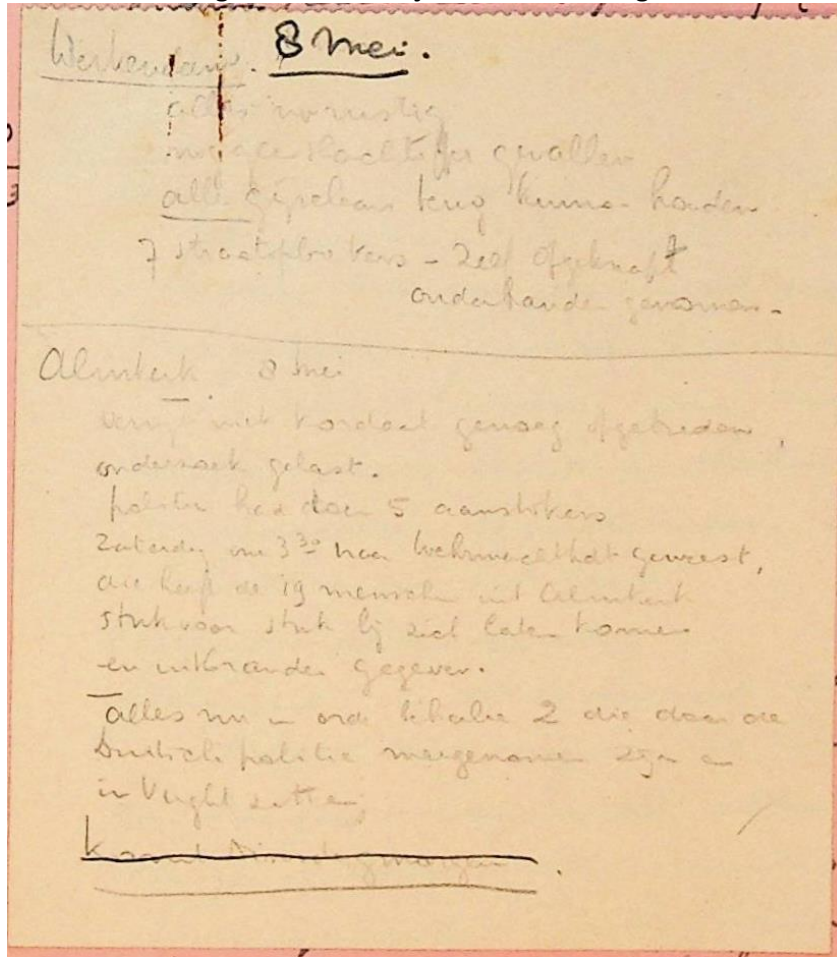 Werkendam. 8 Mei.
alles norustig
nog geen slachtoffer gevallen
alle gijzelaars terug kunnen houden
7 straatsplbokers - zelf opgeknapt
onderhanden genomen.
Almkerk 8 Mei
niet kordaat genoeg opgetreden,
onderzoek gelast.
politie had daar 5 aanstokers
Zaterdag om 3³⁰ naar Wehrmachthdt geweest,
die heeft de 19 menschen uit Almkerk
stuk voor stuk bij zich laten komen
en uitbrander gegeven.
alles nu in orde behalve 2 die door de
Duitsche politie meegenomen zijn en
in Vught zitten,
Komt Dinsdagmorgen